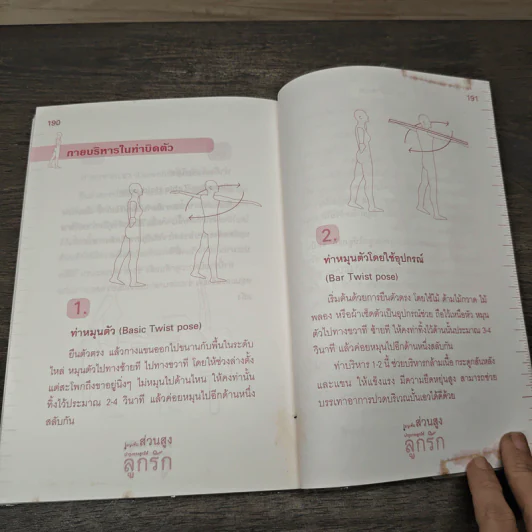 190
กายบริหารในท่าบิดตัว
1.
ท่าหมุนตัว (Basic Twist pose)
ยืนตัวตรง แล้วกางแขนออกไปขนานกับพื้นในระดับ
ไหล่ หมุนตัวไปทางซ้ายที ไปทางขวาที โดยให้ช่วงล่างตั้ง
แต่สะโพกถึงขาอยู่นิ่งๆ ไม่หมุนไปด้านไหน ให้คงท่านั้น
ทิ้งไว้ประมาณ 2-4 วินาที แล้วค่อยหมุนไปอีกด้านหนึ่ง
สลับกัน
ส่วนสูง
ลูกรัก
191
2.
ท่าหมุนตัวโดยใช้อุปกรณ์
(Bar Twist pose)
เริ่มต้นด้วยการยืนตัวตรง โดยใช้ไม้ ด้ามไม้กวาด ไม้
พลอง หรือผ้าเช็ดตัวเป็นอุปกรณ์ช่วย ถือไว้เหนือหัว หมุน
ตัวไปทางขวาที ซ้ายที ให้คงท่าทิ้งไว้ด้านนั้นประมาณ 3-4
วินาที แล้วค่อยหมุนไปอีกด้านหนึ่งสลับกัน
ท่าบริหาร 1-2 นี้ ช่วยบริหารกล้ามเนื้อ กระดูกสันหลัง
และแขน ให้แข็งแรง มีความยืดหยุ่นสูง สามารถช่วย
บรรเทาอาการปวดบริเวณบั้นเอวได้ดีด้วย
ส่วนสูง
ลูกรัก